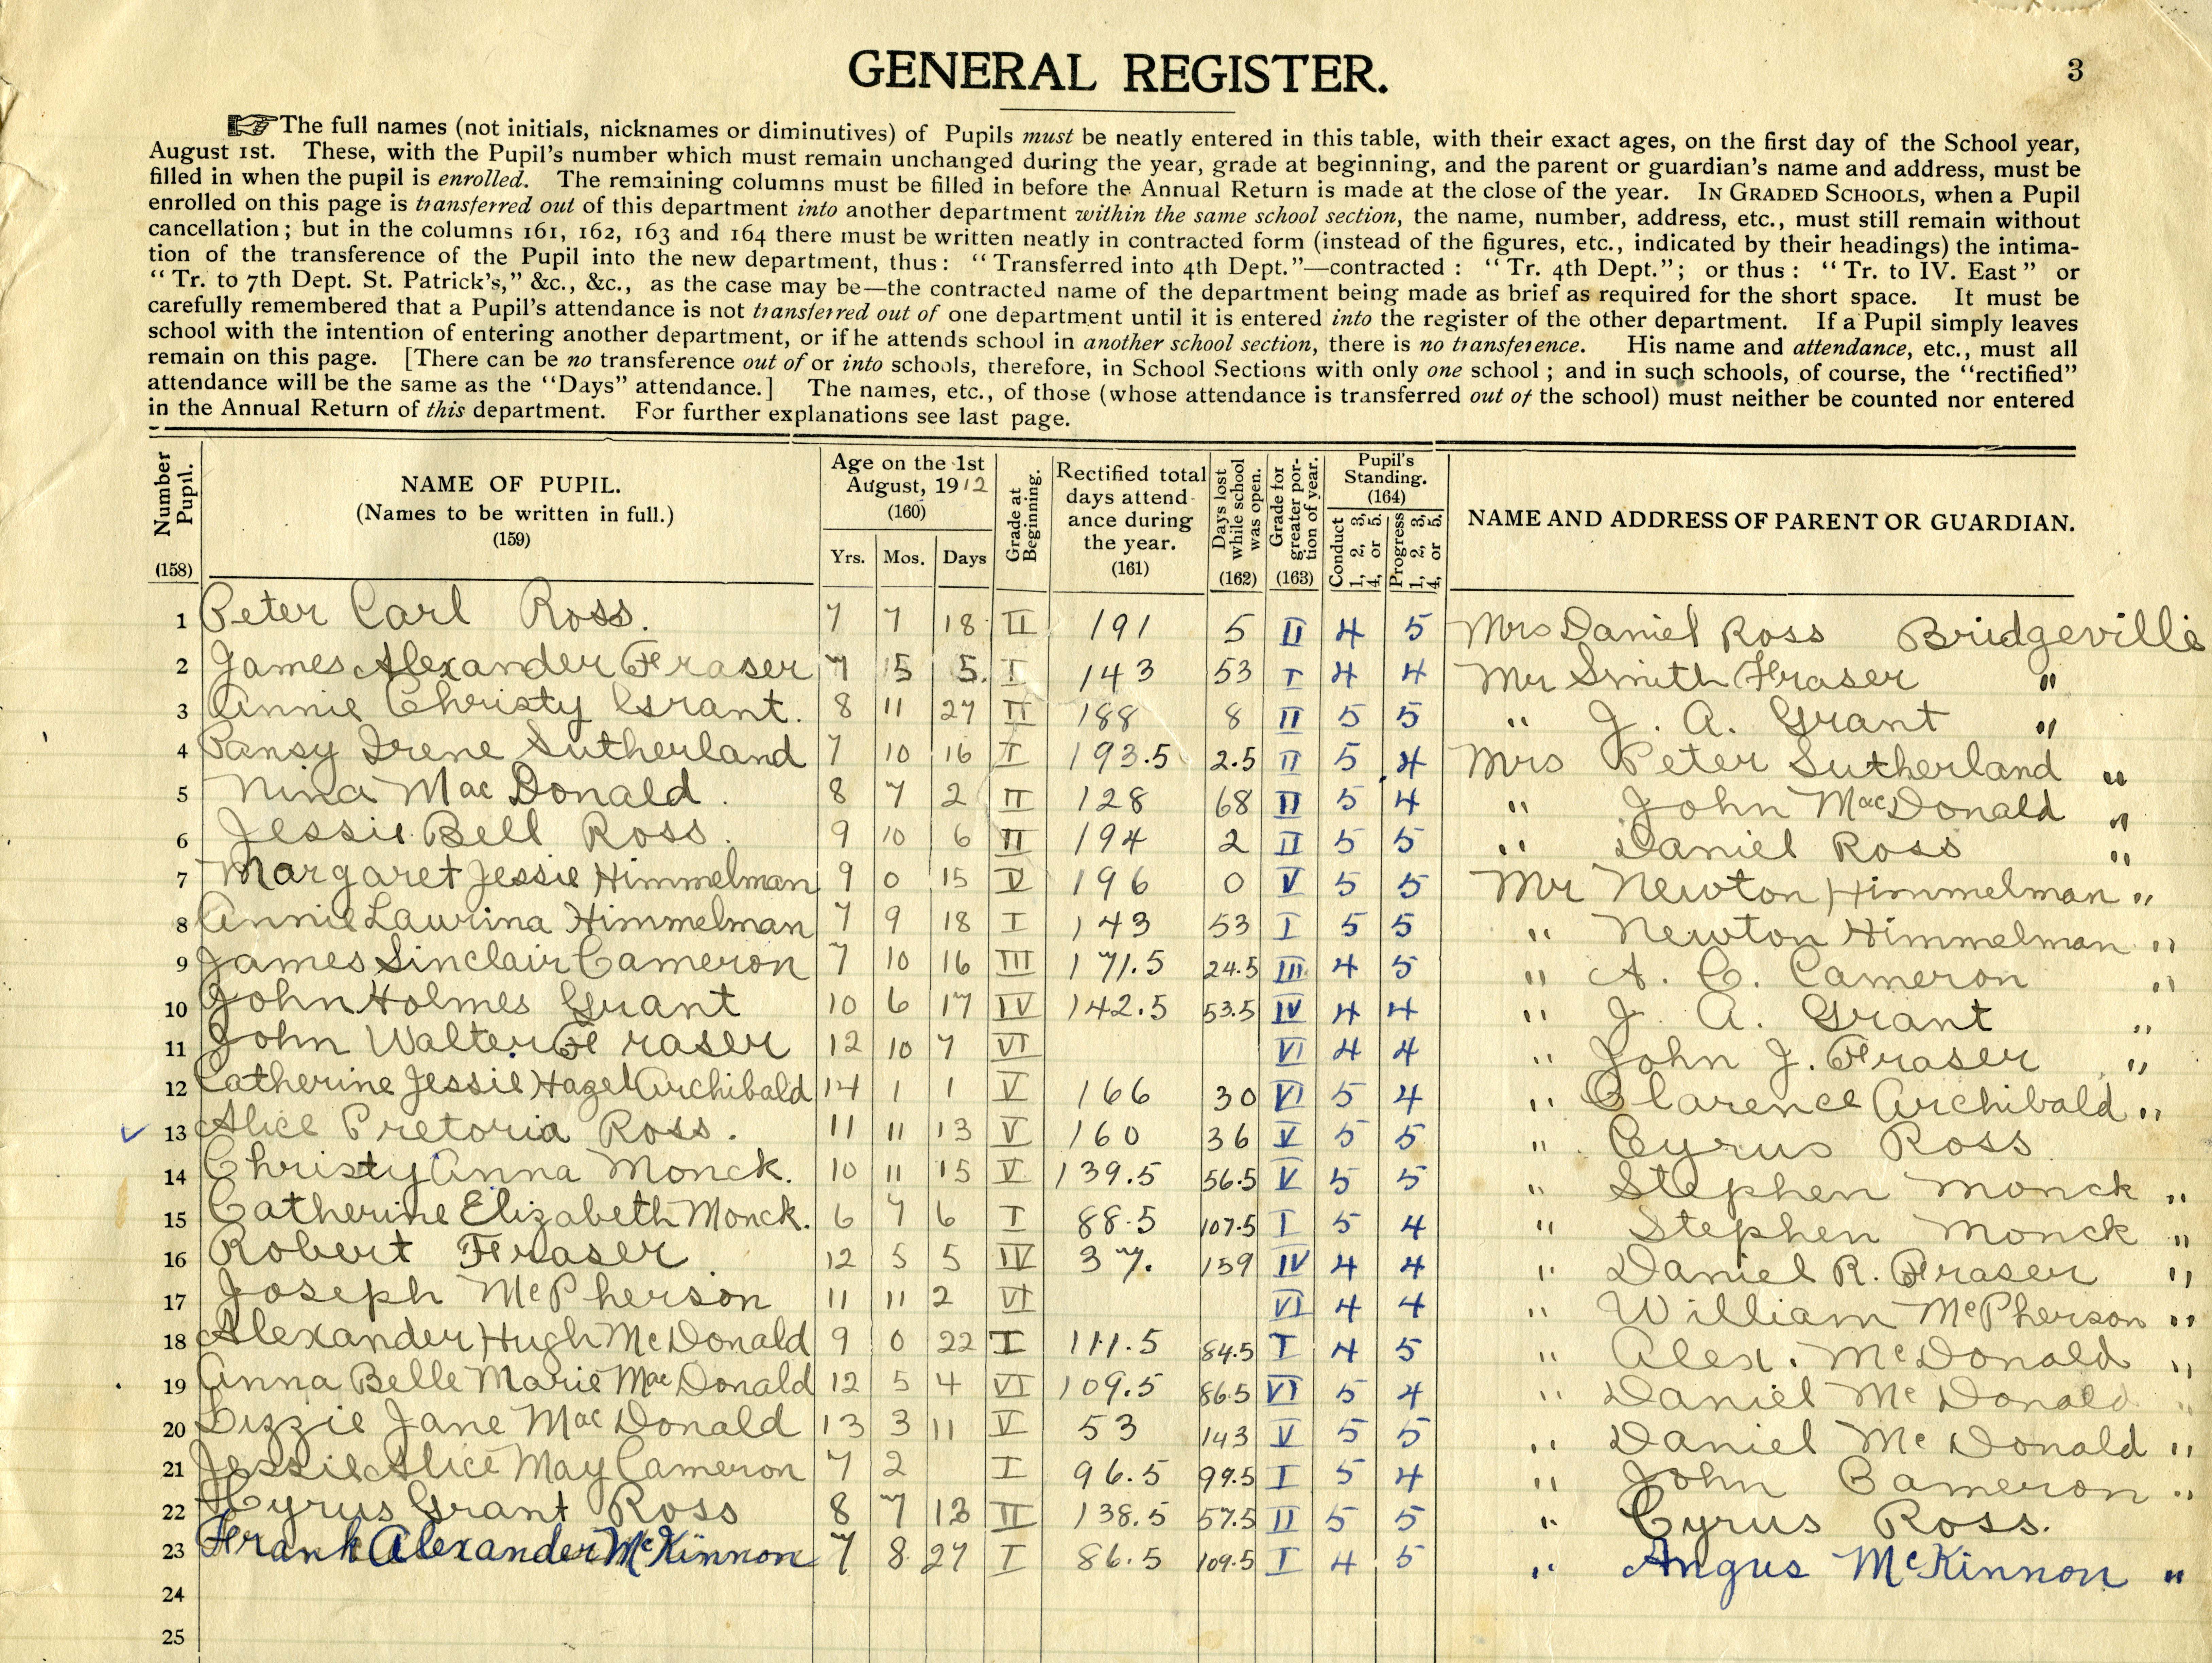 GENERAL REGISTER.
3
☞ The full names (not initials, nicknames or diminutives) of Pupils must be neatly entered in this table, with their exact ages, on the first day of the School year,
August 1st. These, with the Pupil's number which must remain unchanged during the year, grade at beginning, and the parent or guardian's name and address, must be
filled in when the pupil is enrolled. The remaining columns must be filled in before the Annual Return is made at the close of the year. IN GRADED SCHOOLS, when a Pupil
enrolled on this page is transferred out of this department into another department within the same school section, the name, number, address, etc., must still remain without
cancellation; but in the columns 161, 162, 163 and 164 there must be written neatly in contracted form (instead of the figures, etc., indicated by their headings) the intima-
tion of the transference of the Pupil into the new department, thus: "Transferred into 4th Dept."—contracted: "Tr. 4th Dept."; or thus: "Tr. to IV. East" or
"Tr. to 7th Dept. St. Patrick's," &c., &c., as the case may be—the contracted name of the department being made as brief as required for the short space. It must be
carefully remembered that a Pupil's attendance is not transferred out of one department until it is entered into the register of the other department. If a Pupil simply leaves
school with the intention of entering another department, or if he attends school in another school section, there is no transference. His name and attendance, etc., must all
remain on this page. [There can be no transference out of or into schools, therefore, in School Sections with only one school; and in such schools, of course, the "rectified"
attendance will be the same as the "Days" attendance.] The names, etc., of those (whose attendance is transferred out of the school) must neither be counted nor entered
in the Annual Return of this department. For further explanations see last page.
Number Pupil. (158)
NAME OF PUPIL.
(Names to be written in full.)
(159)
Age on the 1st
August, 1912
(160)
Yrs. Mos. Days
Grade at Beginning.
Rectified total
days attend-
ance during
the year.
(161)
Days lost while school was open. (162)
Grade for greater por- tion of year. (163)
Pupil's
Standing.
(164)
Conduct 1, 2, 3, 4, or 5.
Progress 1, 2, 3, 4, or 5.
NAME AND ADDRESS OF PARENT OR GUARDIAN.
1 Peter Carl Ross. 7 7 18 II 191 5 II 4 5 Mrs Daniel Ross Bridgeville
2 James Alexander Fraser 7 5 5. I 143 53 I 4 4 Mr Smith Fraser "
3 Annie Christy Grant. 8 11 27 II 188 8 II 5 5 " J. A. Grant "
4 Pansy Irene Sutherland 7 10 16 I 193.5 2.5 II 5 4 Mrs Peter Sutherland "
5 Nina MacDonald. 8 7 2 II 128 68 II 5 4 " John MacDonald "
6 Jessie Bell Ross. 9 10 6 II 194 2 II 5 5 " Daniel Ross "
7 Margaret Jessie Himmelman 9 0 15 V 196 0 V 5 5 Mr Newton Himmelman "
8 Annie Laurina Himmelman 7 9 18 I 143 53 I 5 5 " Newton Himmelman "
9 James Sinclair Cameron 7 10 16 III 171.5 24.5 III 4 5 " A. C. Cameron "
10 John Holmes Grant 10 6 17 IV 142.5 53.5 IV 4 4 " J. A. Grant "
11 John Walter Fraser 12 10 7 VI VI 4 4 " John J. Fraser "
12 Catherine Jessie Hazel Archibald 14 1 1 V 166 30 VI 5 4 " Clarence Archibald "
✓ 13 Alice Pretoria Ross. 11 11 13 V 160 36 V 5 5 " Cyrus Ross
14 Christy Anna Monck. 10 11 15 V 139.5 56.5 V 5 5 " Stephen Monck "
15 Catherine Elizabeth Monck. 6 7 6 I 88.5 107.5 I 5 4 " Stephen Monck "
16 Robert Fraser 12 5 5 IV 37. 159 IV 4 4 " Daniel R. Fraser "
17 Joseph McPherson 11 11 2 VI VI 4 4 " William McPherson "
18 Alexander Hugh McDonald 9 0 22 I 111.5 84.5 I 4 5 " Alex. McDonald "
19 Anna Belle Marie MacDonald 12 5 4 VI 109.5 86.5 VI 5 4 " Daniel McDonald "
20 Lizzie Jane MacDonald 13 3 11 V 53 143 V 5 5 " Daniel McDonald "
21 Jessie Alice May Cameron 7 2 I 96.5 99.5 I 5 4 " John Cameron "
22 Cyrus Grant Ross 8 7 13 II 138.5 57.5 II 5 5 " Cyrus Ross.
23 Frank Alexander McKinnon 7 8 27 I 86.5 109.5 I 4 5 " Angus McKinnon "
24
25